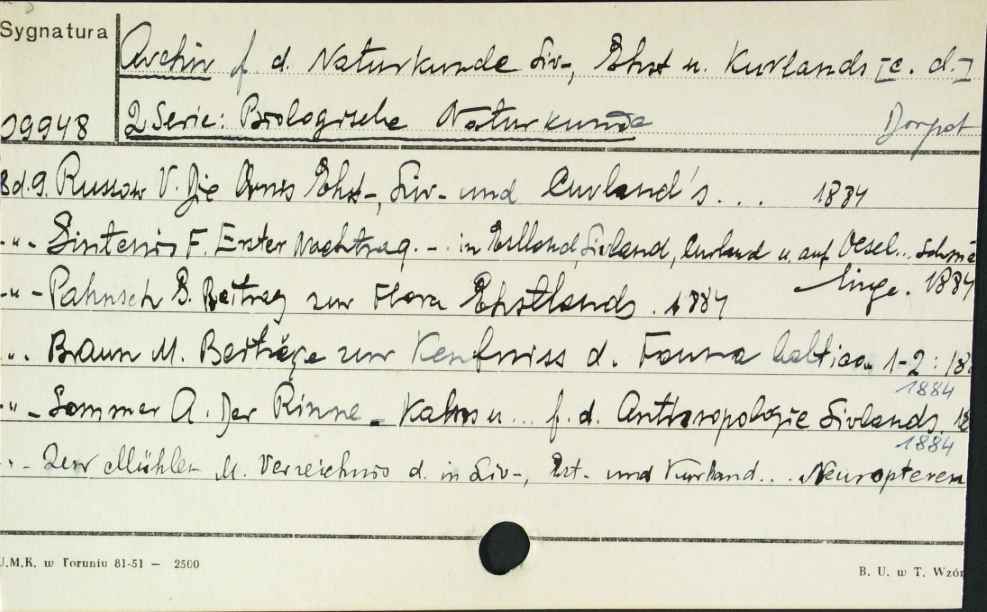 Sygnatura
Archiv f. d. Naturkunde Liv-, Ehst u. Kurlands [c. d.]
29948
2 Serie: Biologische Naturkunde Dorpat
Bd. 9. Russow V. Die Ornis Ehst-, Liv- und Curland's ... 1884
-„- Sintenis F. Erster Nachtrag - in Estland, Livland, Curland u. auf Oesel... Schmet
linge. 1884
-„- Pahnsch G. Beitrag zur Flora Ehstlands. 1884
-„- Braun M. Beiträge zur Kenntniss d. Fauna baltica 1-2: 188
1884
-„- Sommer A. Der Rinne-Kalns u... f. d. Anthropologie Livlands. 18
1884
-„- Zur Mühlen M. Verzeichnis d. in Liv-, Est- und Kurland... Neuropteren
U.M.K. w Toruniu 81-51 — 2500
B. U. w T. Wzór